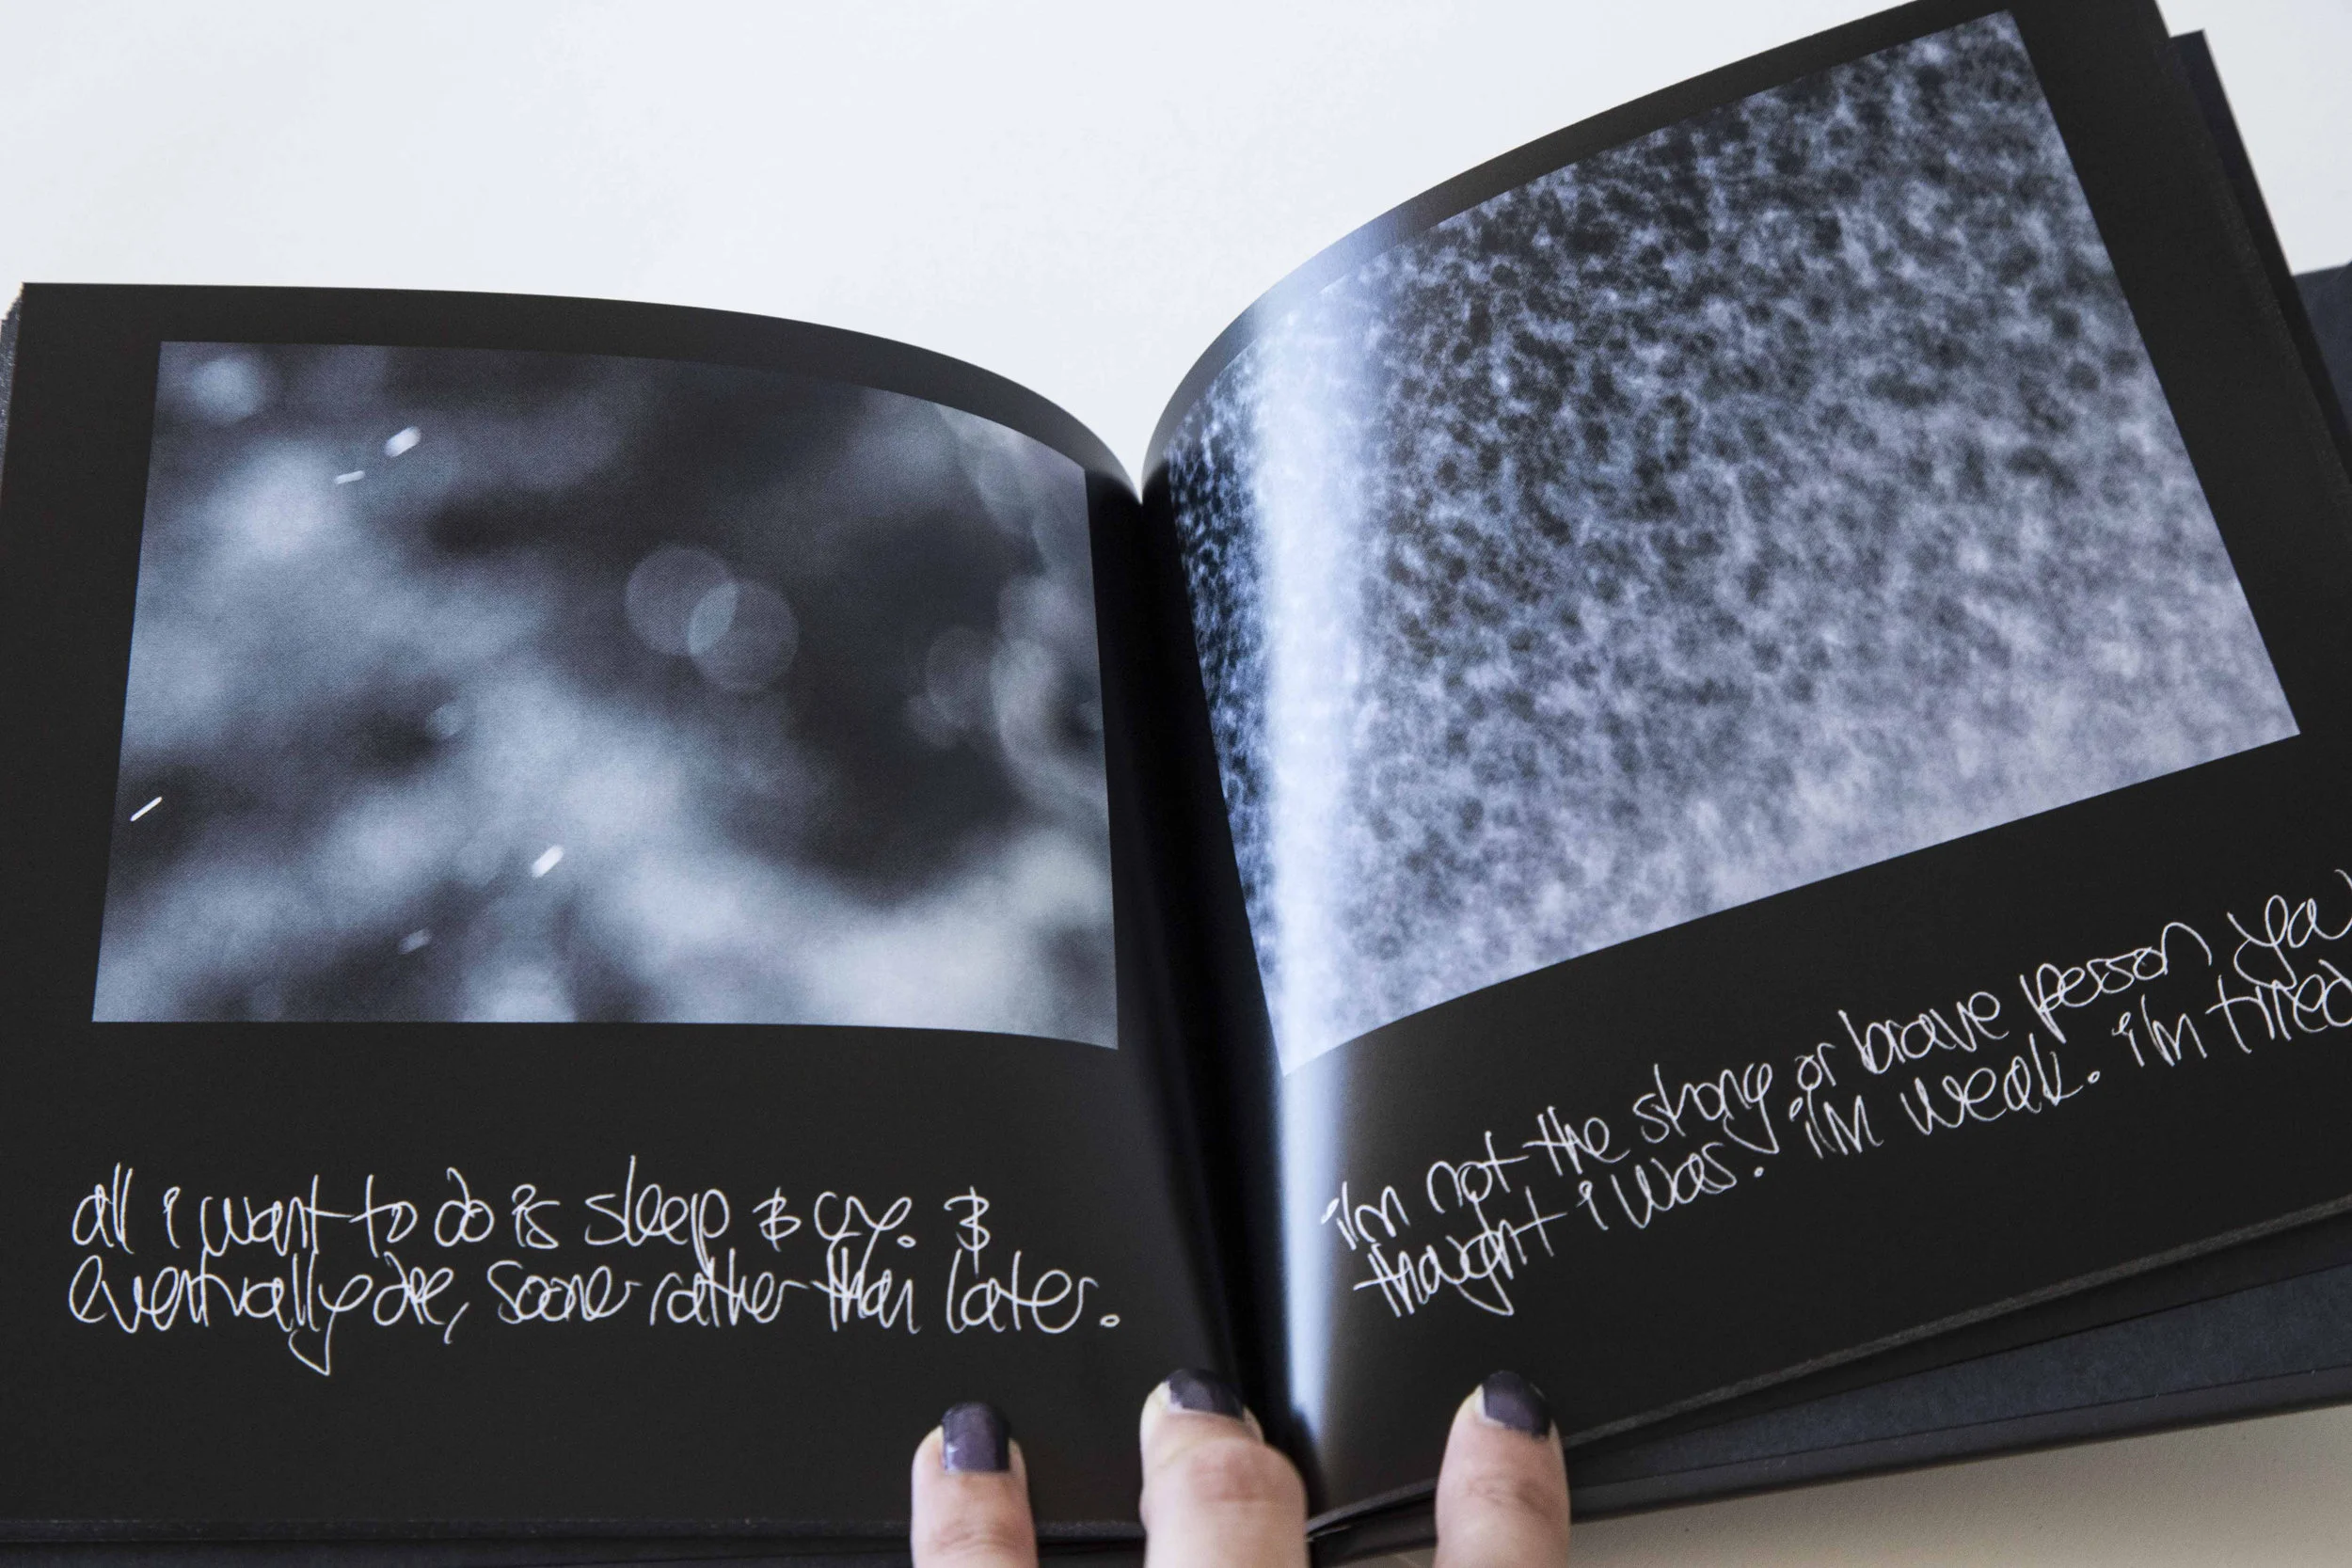 all i want to do is sleep & cry. &
eventually die, sooner rather than later.
i'm not the strong or brave person you
thought i was. i'm weak. i'm tired